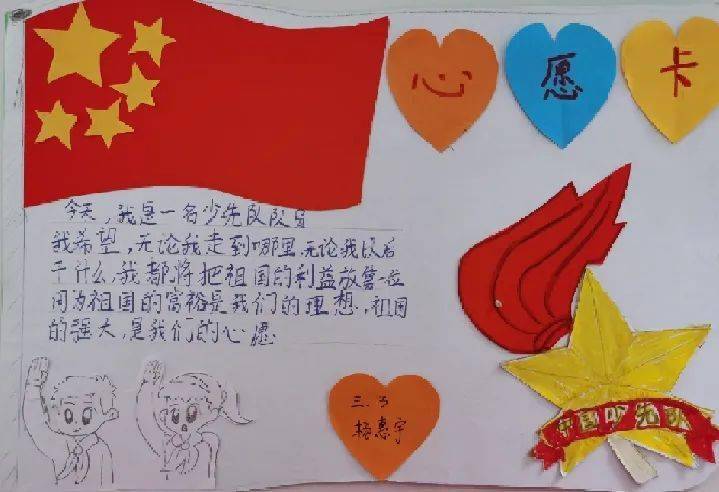 心 愿 卡
今天，我是一名少先队队员
我希望，无论我走到哪里，无论我以后
干什么，我都将把祖国的利益放第一位
因为祖国的富裕是我们的理想，祖国
的强大，是我们的心愿
三.3
杨惠宇
中国少先队